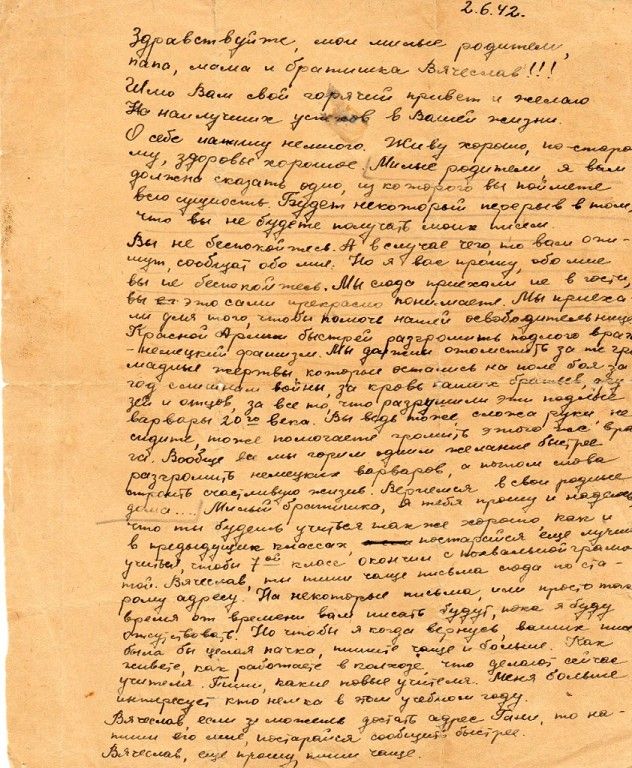 2.6.42.
Здравствуйте, мои милые родители,
папа, мама и братишка Вячеслав!!!
Шлю Вам свой горячий привет и желаю
На наилучших успехов в Вашей жизни.
О себе напишу немного. Живу хорошо, по-старо
му, здоровье хорошое. Милые родители, я вам
должна сказать одно, из которого вы поймете
всю сущность. Будет некоторый перерыв в том,
что вы не будете получать моих писем.
Вы не беспокойтесь. А в случае чего, то вам опи-
шут, сообщат обо мне. Но я вас прошу, обо мне
вы не беспокойтесь. Мы сюда приехали не в гости,
вы это сами прекрасно понимаете. Мы приеха
ли для того, чтобы помочь нашей освободительнице
Красной Армии быстрей разгромить подлого врага
- немецкий фашизм. Мы должны отомстить за те гро
мадные жертвы, которые остались на поле боя за
год с лишним войны, за кровь наших братьев, му
зей и отцов, за все то, что разрушили эти подлые
варвары 20го века. Вы ведь тоже сложа руки не
сидите, тоже помогаете громить этого вра
га. Вообще все мы горим одним желанием быстрее
разгромить немецких варваров, а потом снова
строить счастливую жизнь. Вернемся в свои родные
дома... Милый братишка, я тебя прошу и надеюсь
что ты будешь учиться так же хорошо, как и
в предыдущих классах, постарайся еще лучше
учиться, чтобы 7ой класс окончил с похвальной грамо
той. Вячеслав, ты пиши чаще письма сюда по ста-
рому адресу. На некоторые письма, или просто
время от времени вам писать будут, пока я буду
отсутствовать. Но чтобы я когда вернусь, ваших пис
была бы целая пачка, пишите чаще и больше. Как
живете, как работаете в колхозе что делают сейчас
учителя. Пиши, какие новые учителя. Меня больше
интересует кто немка в этом учебном году.
Вячеслав, если сможешь достать адрес Гали, то на-
пиши его мне, постарайся сообщить быстрее.
Вячеслав, еще прошу, пиши чаще.